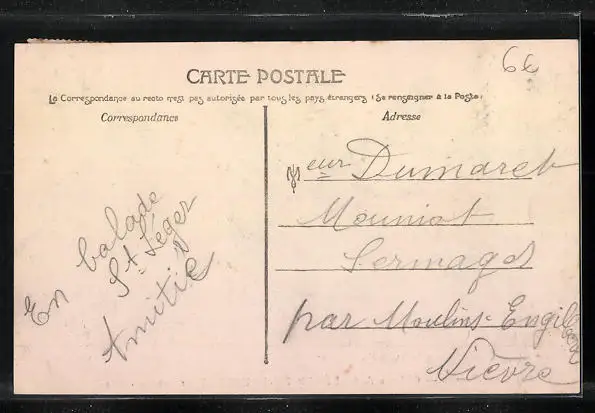 6e
CARTE POSTALE
La Correspondance au recto n'est pas autorisée par tous les pays étrangers (Se renseigner à la Poste)
Correspondance
Adresse
En balade
St Léger
Amitié
Meur Dumaret
Mouniot
Sermages
par Moulins-Engilbert
Nièvre